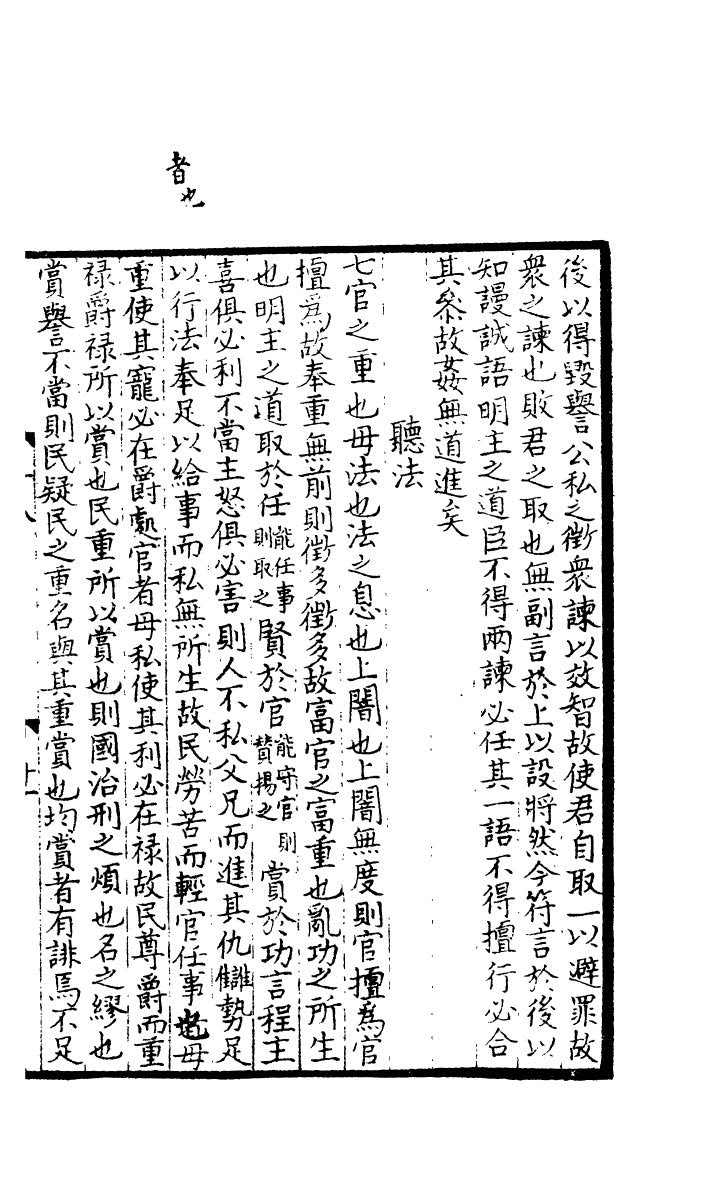 者也
後以得毀譽公私之徵衆諫以效智故使君自取一以避罪故
衆之諫也敗君之取也無副言於上以設將然今符言於後以
知謾誠語明主之道臣不得兩諫必任其一語不得擅行必合
其叅故姦無道進矣
聽法
七官之重也毋法也法之息也上闇也上闇無度則官擅爲官
擅爲故奉重無前則徵多徵多故富官之富重也亂功之所生
也明主之道取於任能任事則取之賢於官能守官則賛揚之賞於功言程主
喜俱必利不當主怒俱必害則人不私父兄而進其仇讎勢足
以行法奉足以給事而私無所生故民勞苦而輕官任事也毋
重使其寵必在爵䖏官者毋私使其利必在禄故民尊爵而重
禄爵禄所以賞也民重所以賞也則國治刑之煩也名之繆也
賞譽不當則民疑民之重名與其重賞也均賞者有誹焉不足
十八
十一